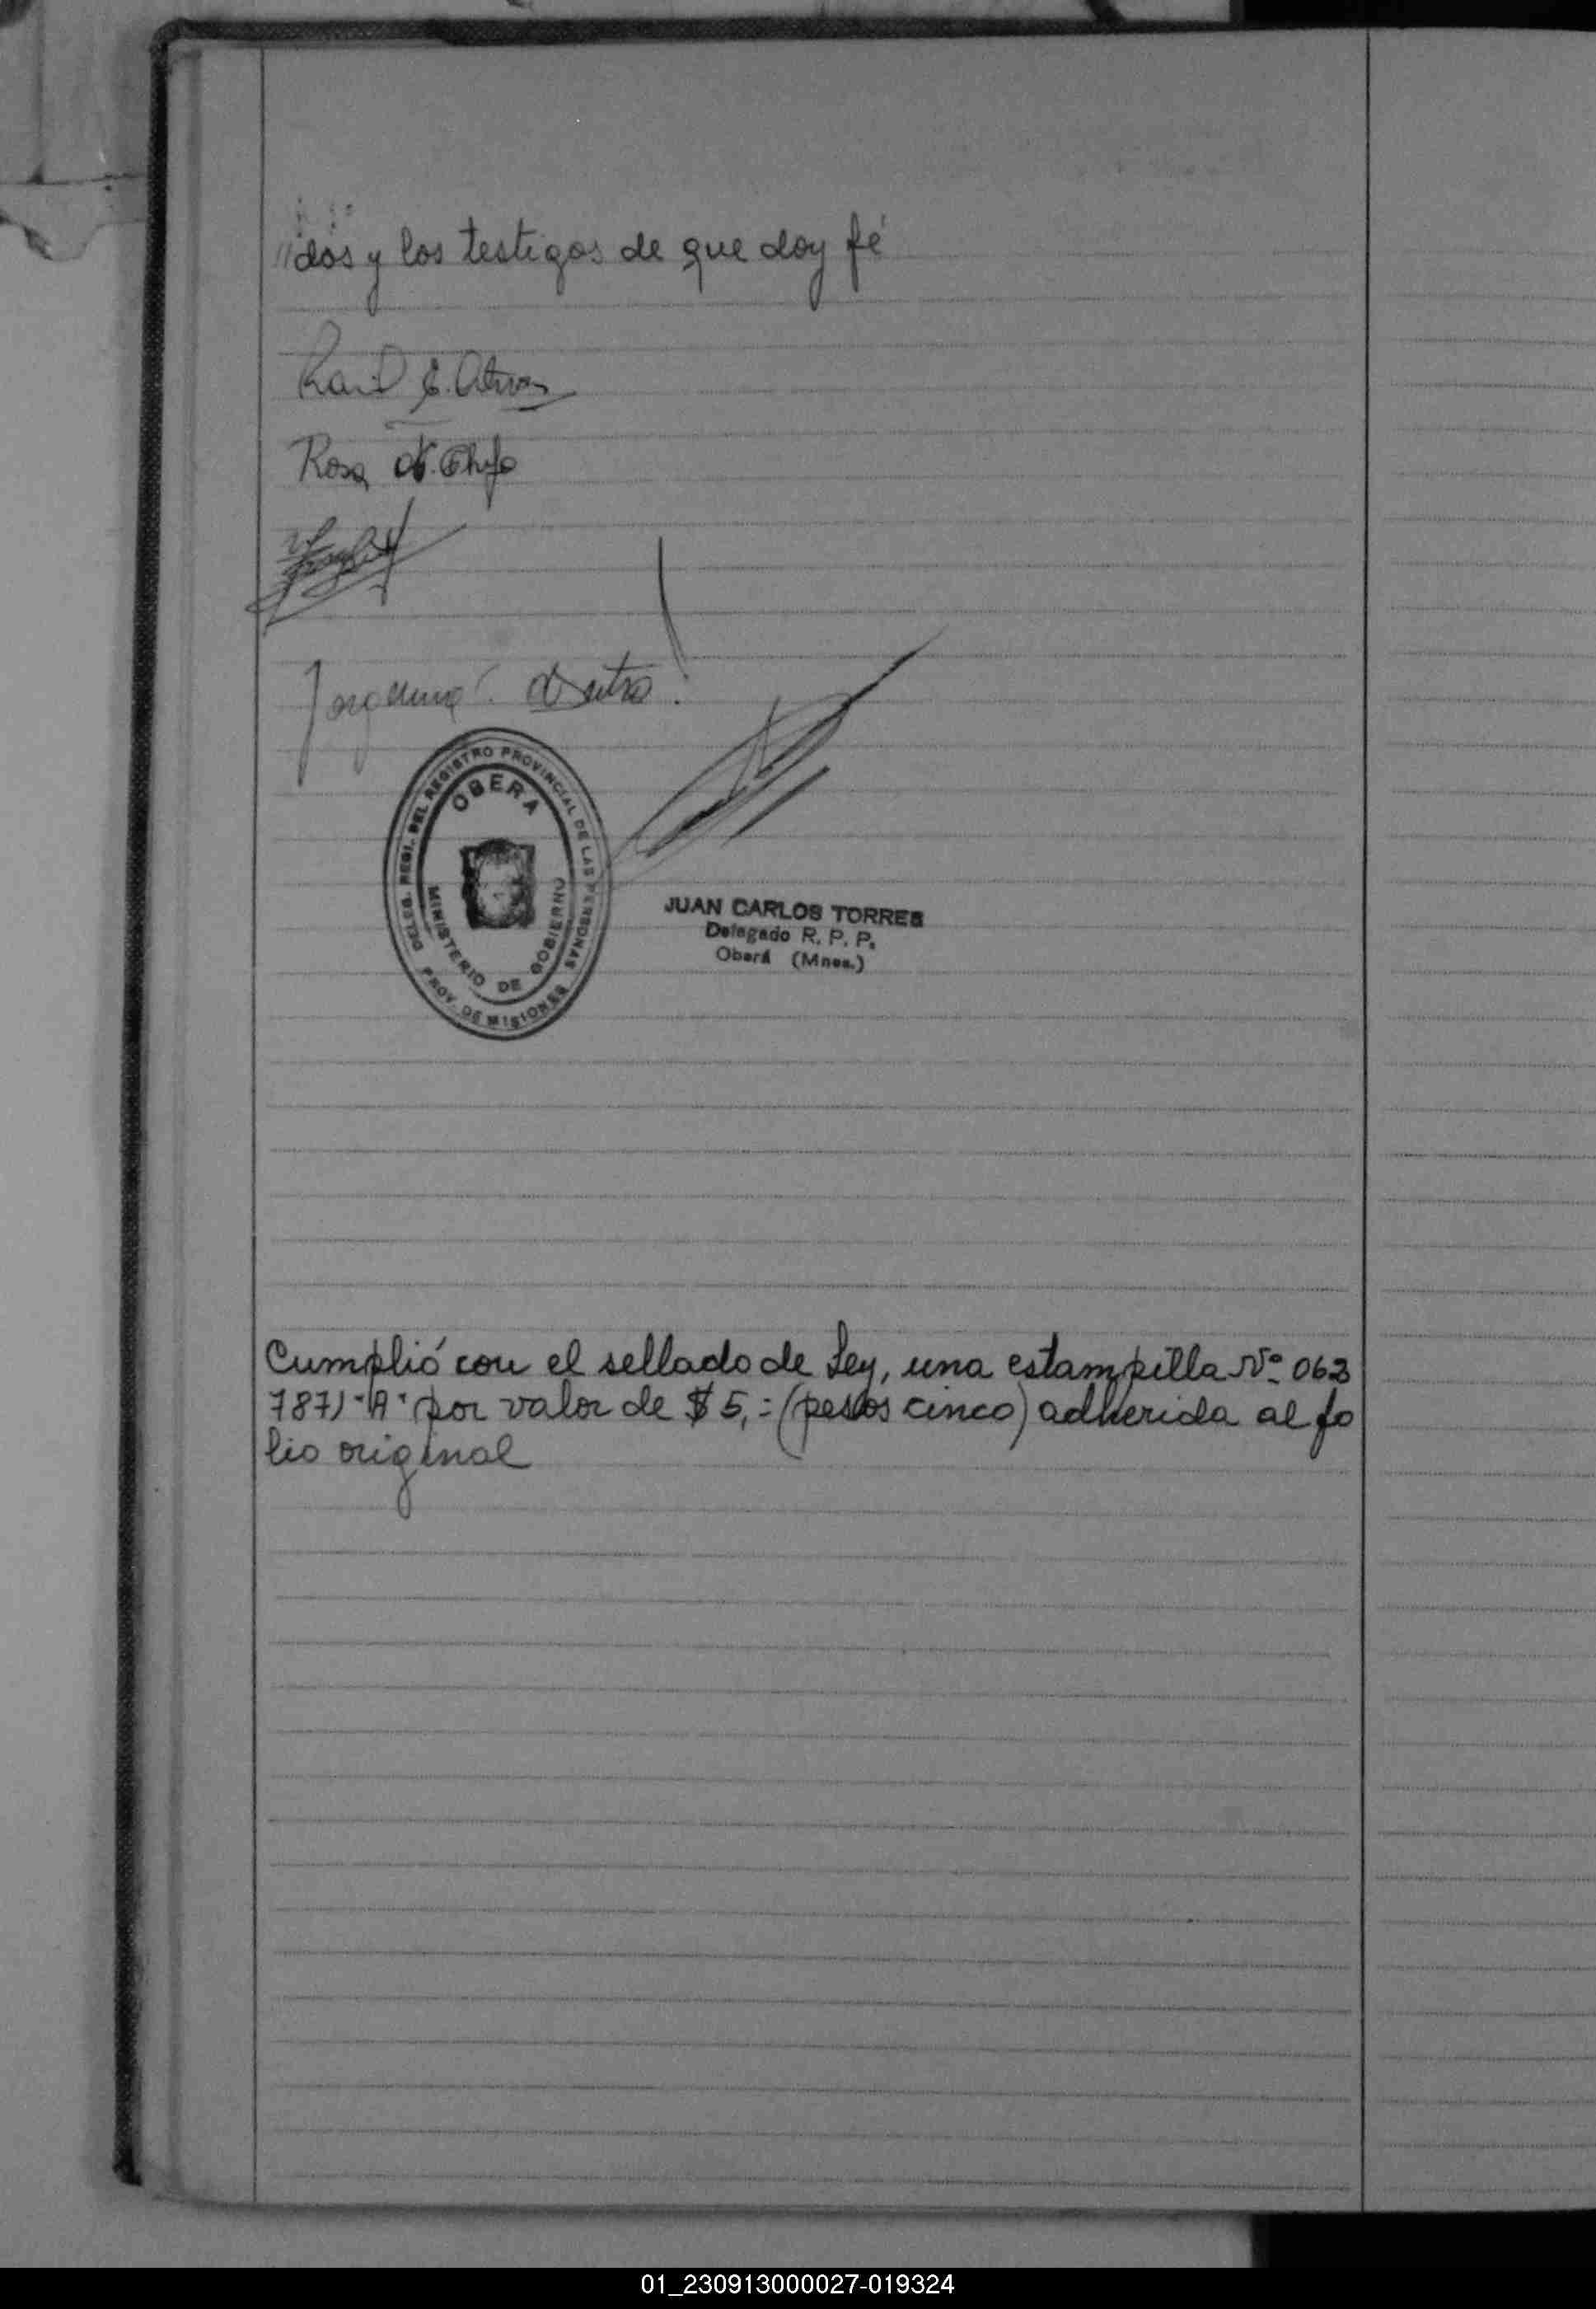 //dos y los testigos de que doy fé
Raul E.
Rosa
DELEG. REGI. DEL REGISTRO PROVINCIAL DE LAS PERSONAS
OBERA
MINISTERIO DE GOBIERNO
PROV. DE MISIONES
JUAN CARLOS TORRES
Delegado R. P. P.
Oberá (Mnes.)
Cumplió con el sellado de Ley, una estampilla Nº 062
787) "A" por valor de $ 5,= (pesos cinco) adherida al fo
lio original
01_230913000027-019324